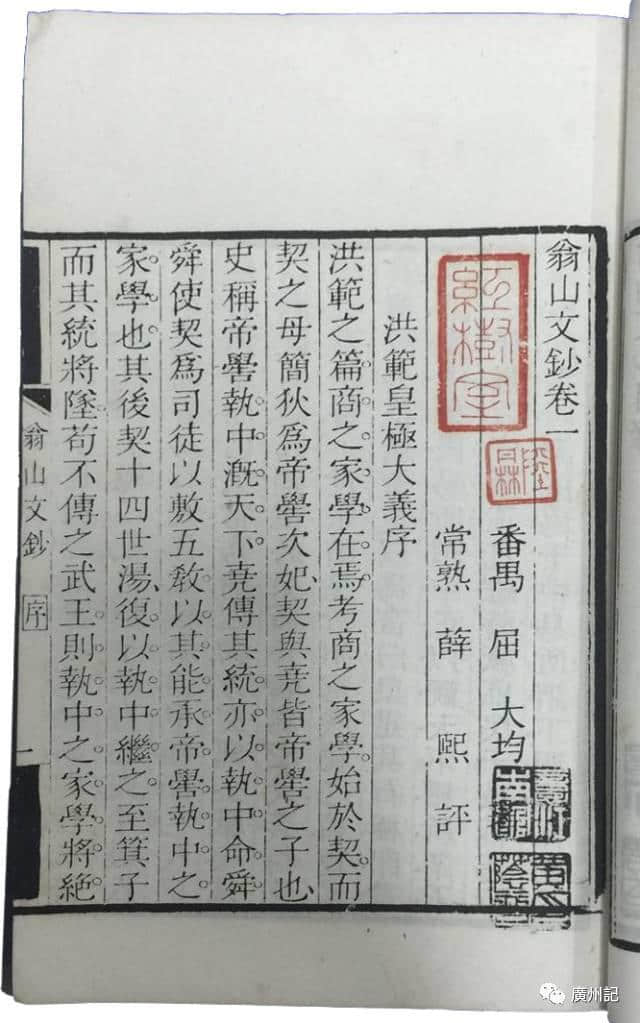 翁山文鈔卷一
番禺 屈 大均
常熟 薛 熙 評
紅樹室
洪範皇極大義序
洪範之篇商之家學在焉考商之家學始於契而
契之母簡狄爲帝嚳次妃契與堯皆帝嚳之子也
史稱帝嚳執中漑天下堯傳其統亦以執中命舜
舜使契爲司徒以敷五敎以其能承帝嚳執中之
家學也其後契十四世湯復以執中繼之至箕子
而其統將墜苟不傳之武王則執中之家學將絶
翁山文鈔
序
一
廣州記